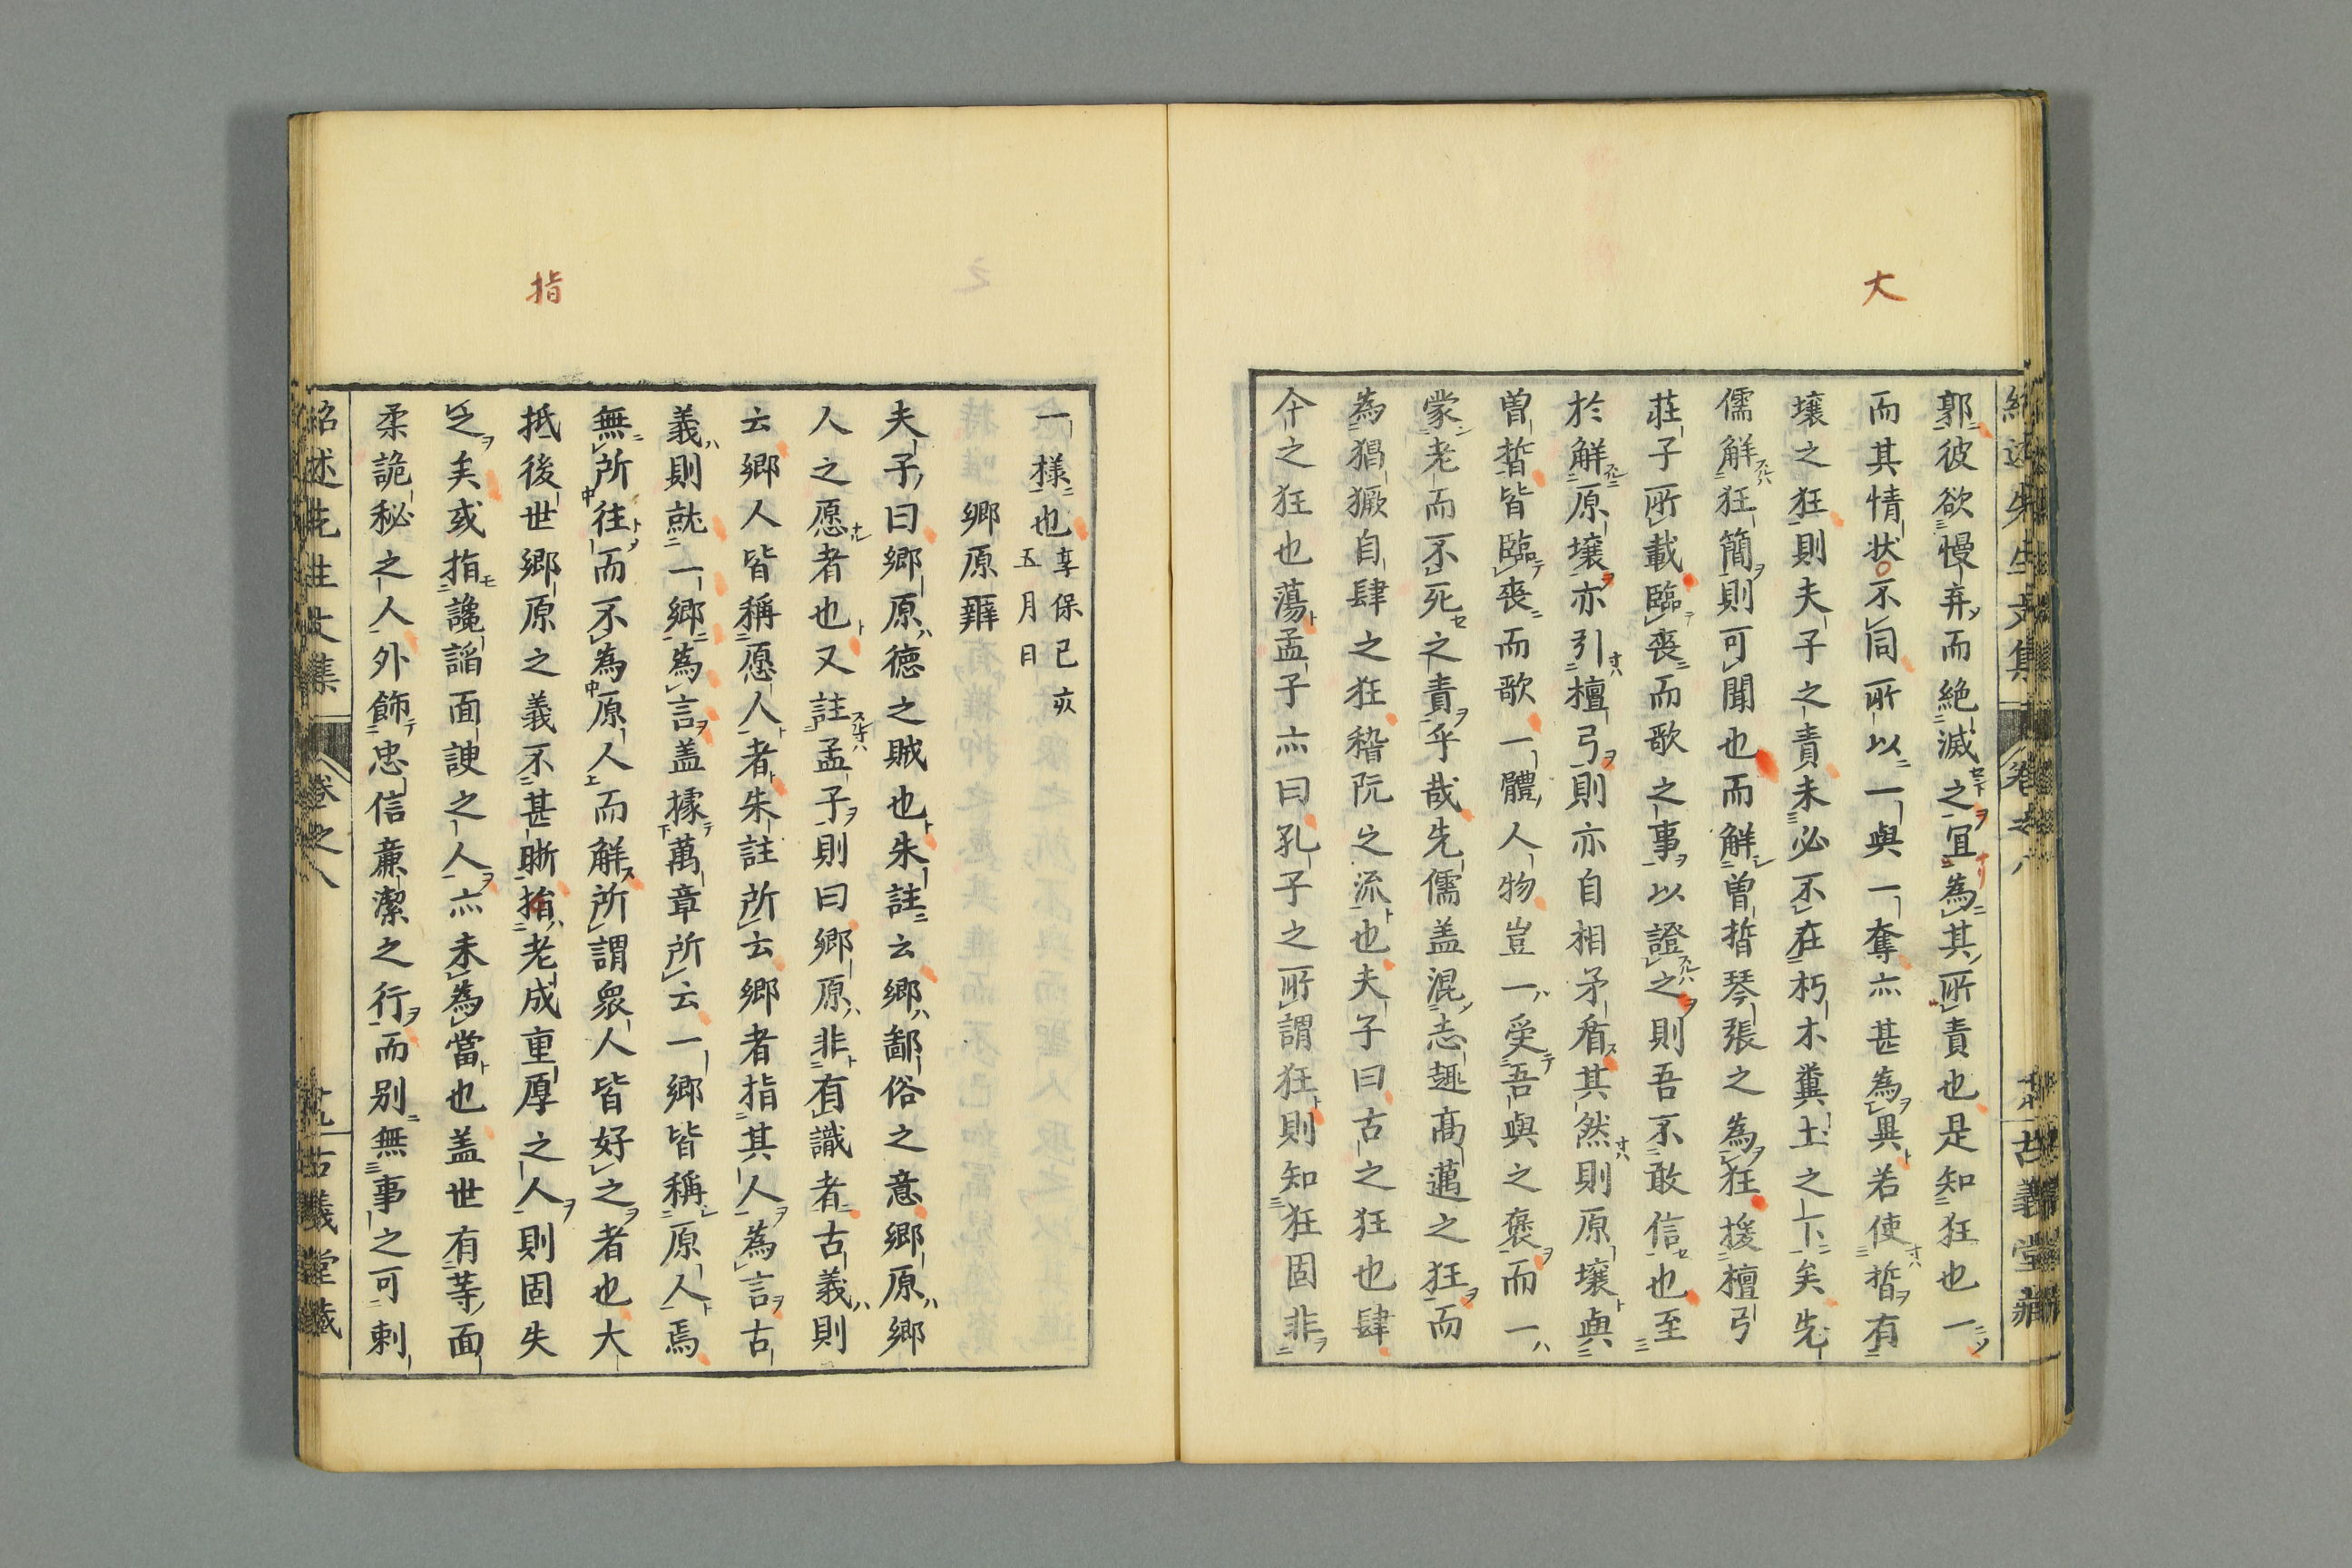 大
郭彼欲慢弃而絶滅之冝為其所責也是知狂也一
而其情状不同所以一與一奪亦甚為異若使晳有
壤之狂則夫子之責未必不在朽木糞土之下矣先
儒解狂簡則可聞也而解曽晳琴張之為狂援檀弓
莊子所載臨喪而歌之事以證之則吾不敢信也至
於解原壤亦引檀弓則亦自相矛盾其然則原壤與
曽晳皆臨喪而歌一體人物豈一受吾與之褒而一
蒙老而不死之責乎哉先儒盖混志趣髙邁之狂而
為猖獗自肆之狂嵆阮之流也夫子曰古之狂也肆
今之狂也蕩孟子亦曰孔子之所謂狂則知狂固非
指
一様也享保己亥五月日
鄉原辨
夫子曰鄉原德之賊也朱註云鄉鄙俗之意鄉原鄉
人之愿者也又註孟子則曰鄉原非有識者古義則
云鄉人皆稱愿人者朱註所云鄉者指其人為言古
義則就一鄉為言盖據萬章所云一鄉皆稱原人焉
無所往而不為原人而解所謂衆人皆好之者也大
抵後世鄉原之義不甚晣指老成重厚之人則固失
之矣或指讒謟面諛之人亦未為當也盖世有等面
柔詭秘之人外飾忠信亷潔之行而别無事之可刺
紹述先生文集
卷之八
古義堂藏